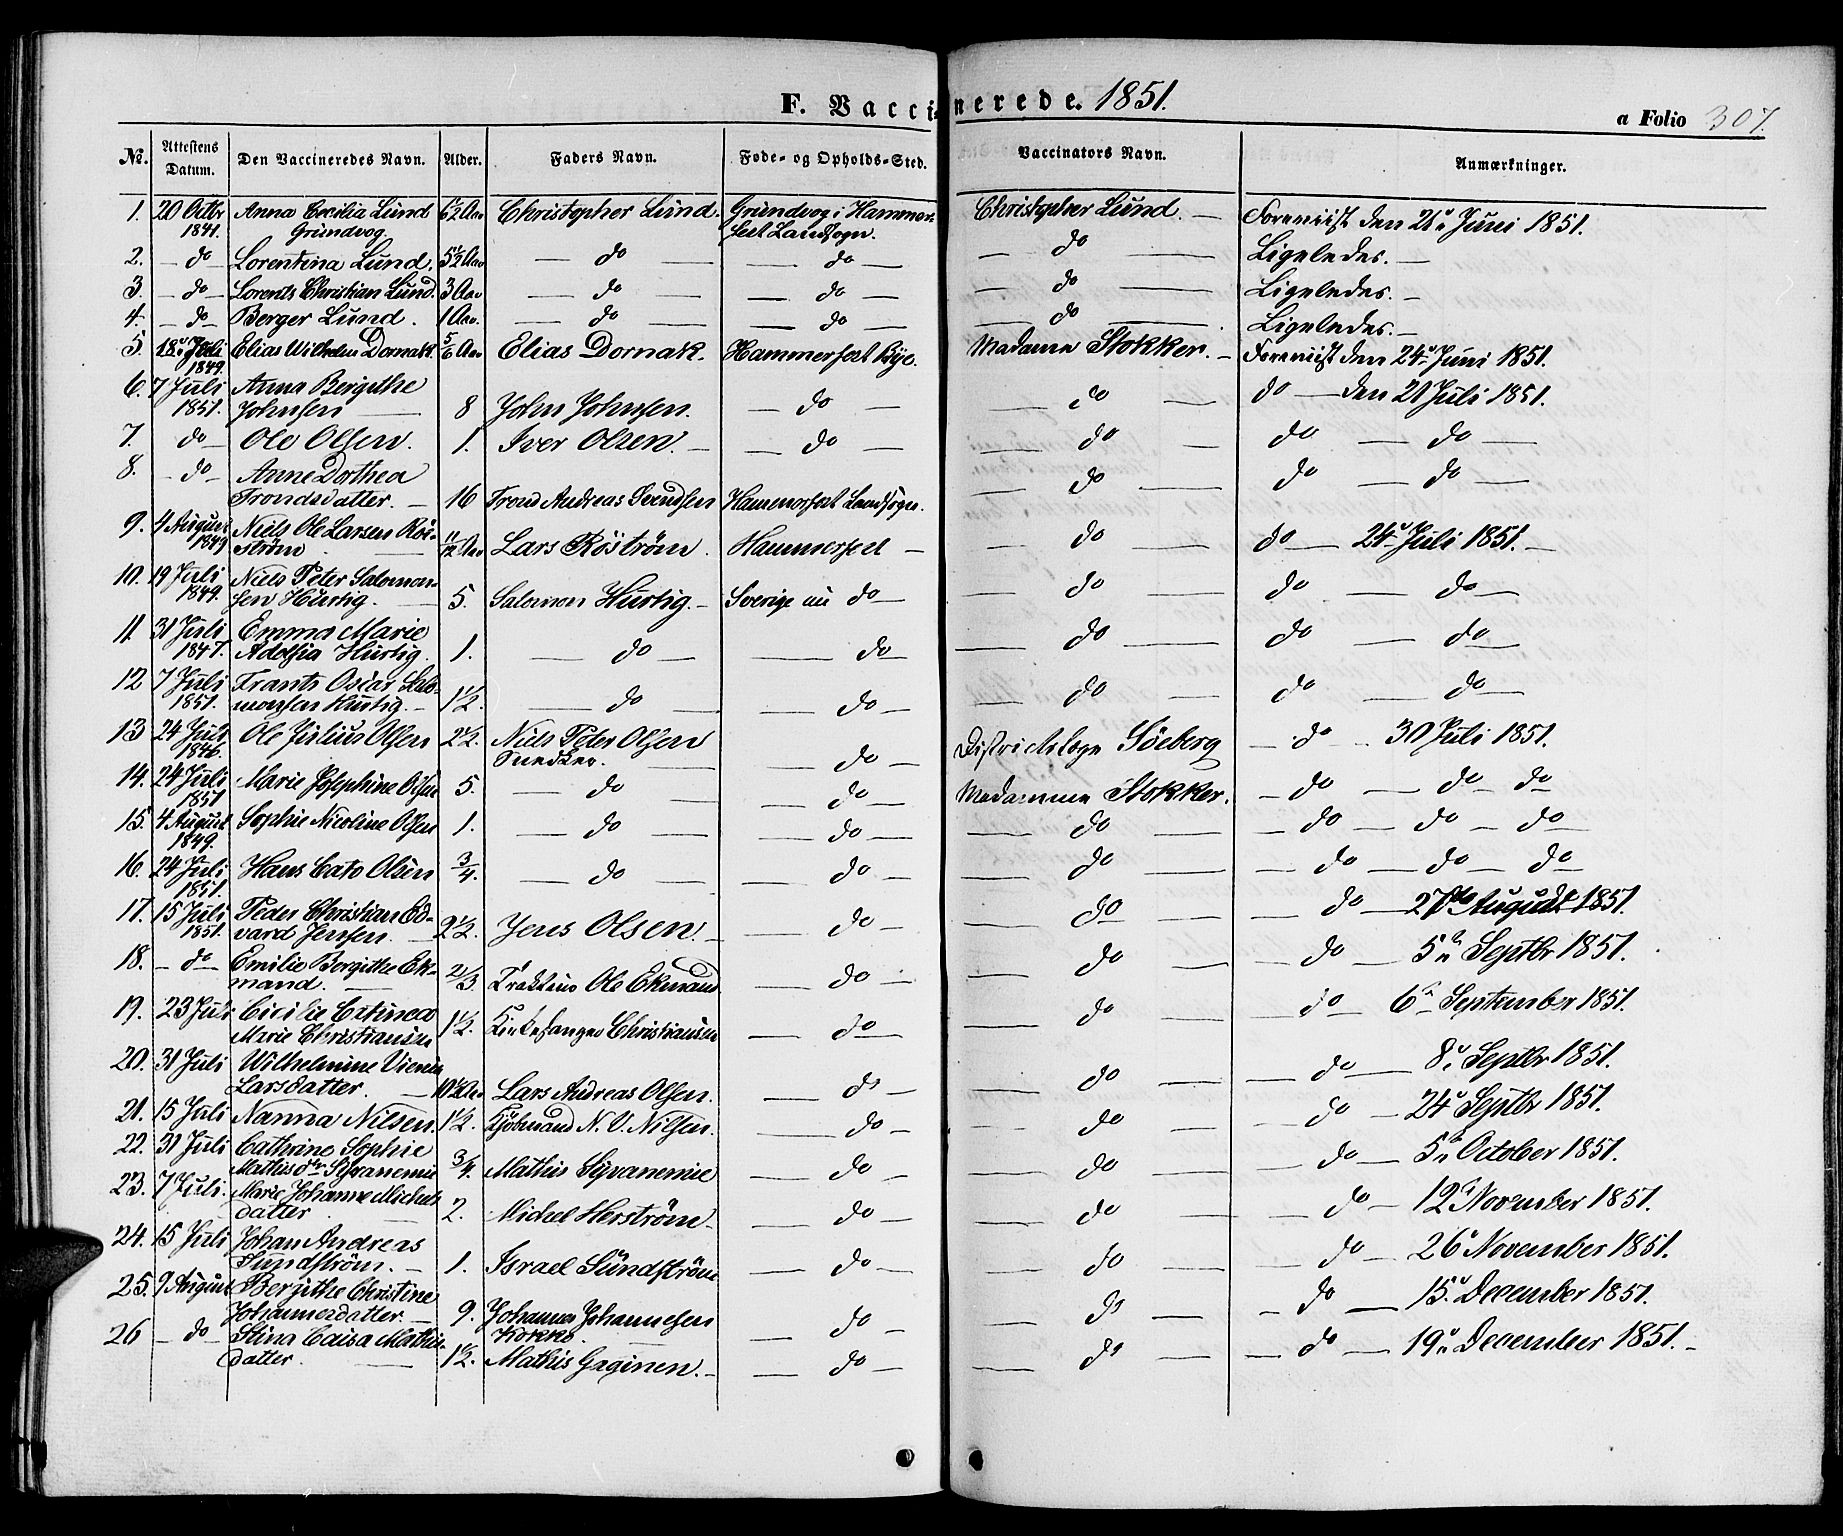 F. Vaccinerede. 1851.
a Folio 307.
No. | Attestens Datum. | Den Vaccineredes Navn. | Alder. | Faders Navn. | Føde- og Opholds-Sted. | Vaccinators Navn. | Anmærkninger.
1. 20 Octbr 1841. Anna Cecilia Lund Grundvog. 6½ Aar Christopher Lund. Grundvog i Hammerfest Landsogn. Christopher Lund. — Foreviist den 21 Juni 1851.
2. — do Lorentina Lund. 5½ Aar — do — — do — — do — Ligeledes. —
3. — do — Lorents Christian Lund. 3 Aar — do — — do — — do — Ligeledes. —
4. — do — Berger Lund. 1 Aar. — do — — do — — do — Ligeledes. —
5. 18 Juli 1849. Elias Wilhelm Dornak. 5/6 Aar Elias Dornak. Hammerfest Bye. Madame Stokker. — Foreviist den 24 Juni 1851.
6. 7 Juli 1851. Anna Bergithe Johnsen — 8 John Johnsen. — do — — do — do — den 21 Juli 1851.
7. do — Ole Olsen. 1. Iver Olsen. — — do — — do — do — do —
8. — do — Anne Dorthea Trondsdatter. — 16 Trond Andreas Svendsen Hammerfest Landsogn. — do — do — do —
9. 4 August 1849 Niels Ole Larsen Röström — 11/12 Aar Lars Röström. Hammerfest — — do — do — 24 Juli 1851. —
10. 19 Juli 1849. Niels Peter Salomonsen Hurtig. — 5. Salomon Hurtig. — Sverige nu do — — do — do — do —
11 31 Juli 1847. Emma Marie Adolfia Hurtig. 1. — do — — do — — do — do — do —
12 7 Juli 1851. Frants Oscar Salomonsen Hurtig. — 1½. — do — — do — — do — do — do —
13 24 Juli 1846. Ole Julius Olsen 2½. Niels Peter Olsen Snedker. — — do — Districtslæge Söeberg — do — 30 Juli 1851.
14. 24 Juli 1851 Marie Josephine Olsen 5. — do — — do — Madamme Stokker. — do — do — do
15. 4 August 1849. Sophie Nicoline Olsen 1. — do — — do — — do — — do — do — do —
16. 24 Juli 1851. Hans Cato Olsen 3/4. — do — — do — — do — — do — do — do
17. 15 Juli 1851. Peder Christian Edvard Jensen. — 2½. Jens Olsen. — — do — — do — — do — 27 August 1851.
18. — do — Emilie Bergithe Ekmand. — 2/3. Ole Ekmand. — do — — do — — do — 5 Septbr 1851.
19. 23 Juli Cicilie Catinca Marie Christiansen 1½. Kirkesanger Christiansen — do — — do — — do — 6 September 1851.
20. 31 Juli Wilhelmine Larsdatter. — 10½ Aar Lars Andreas Olsen. — do — — do — — do — 8 Septbr 1851.
21. 15 Juli Nanna Nilsen. 1½. Kjöbmand N. V. Nilsen. — do — — do — — do — 24 Septbr 1851.
22. 31 Juli Cathrine Sophie Mathisdtr Syvanemie 3/4. Mathis Syvanemie — do — — do — — do — 5 October 1851.
23. 7 Juli. Marie Johanne Michelsdatter. — 2. Michel Herström — — do — — do — — do — 12 November 1851.
24. 15 Juli Johan Andreas Sundström. — 1. Israel Sundström — do — — do — — do — 26 November 1851.
25. 9 August Bergithe Christine Johannesdatter. — 9. Johannes Johannesen Kokko. — do — — do — — do — 15 December 1851.
26 — do — Stina Caisa Mathisdatter. — 1½. Mathis Gaginen. — — do — — do — — do — 19 December 1851. —